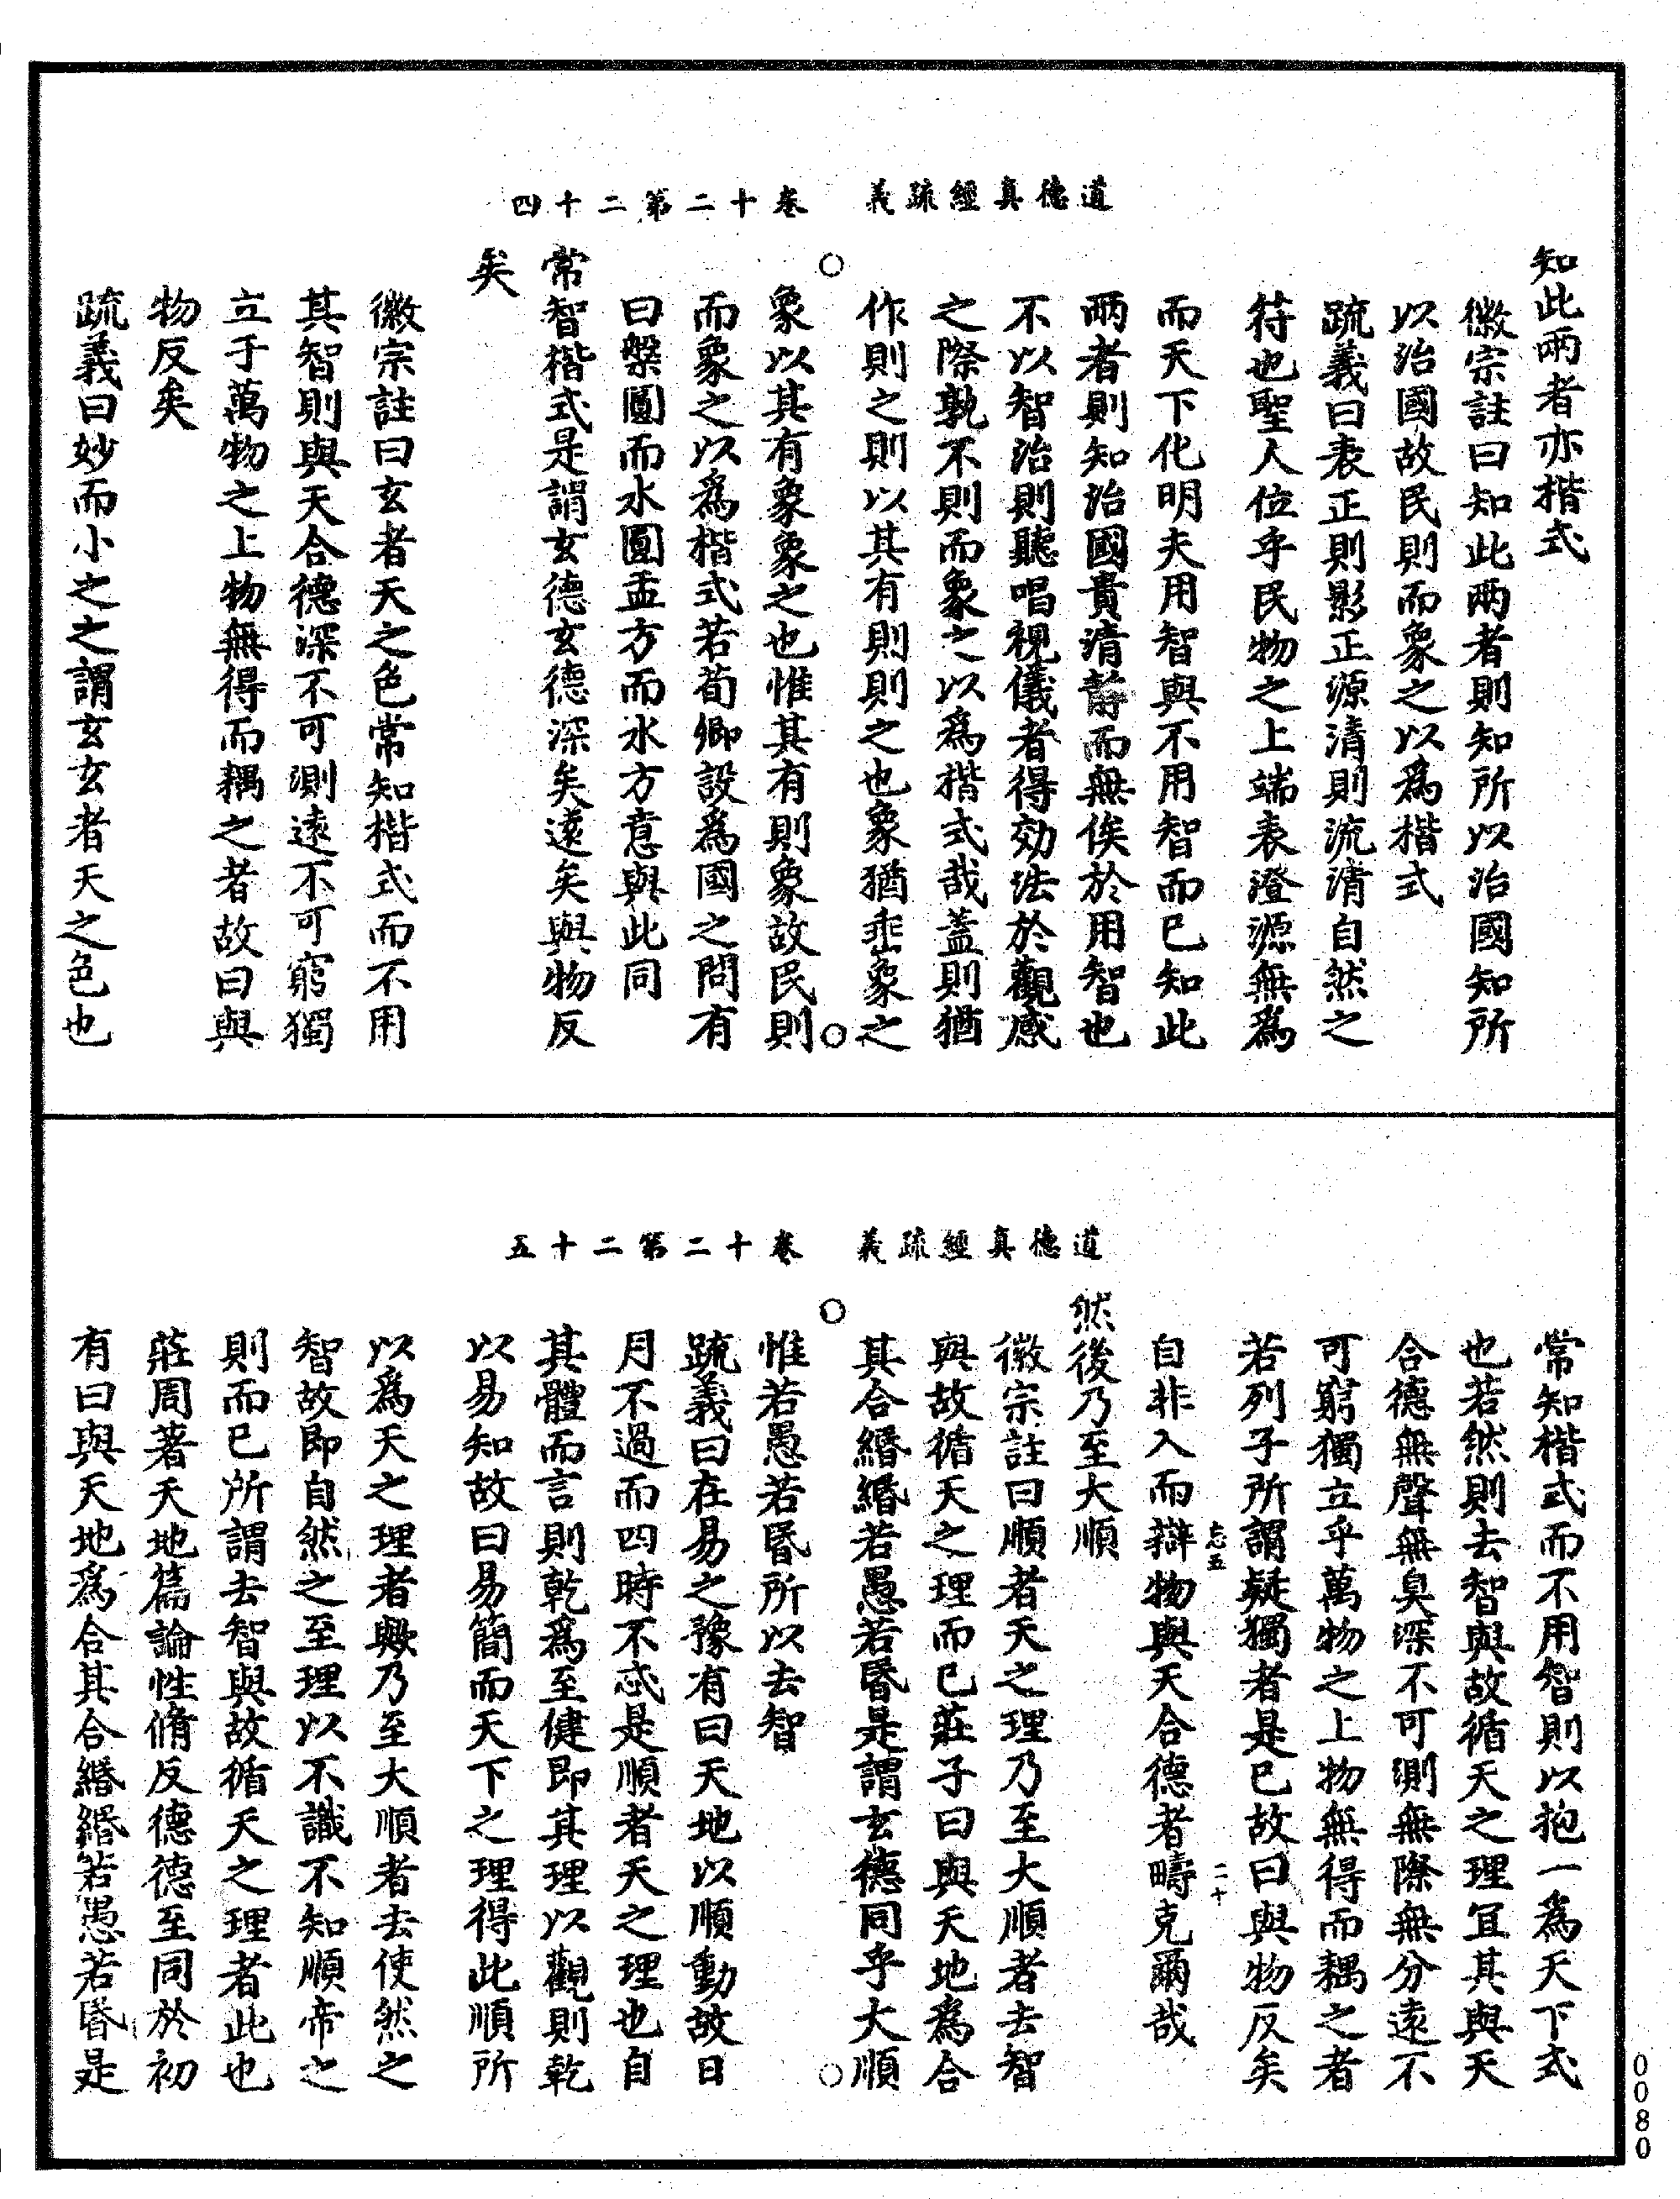 道德真經疏義　卷十二第二十四
知此兩者亦楷式
徽宗註曰知此兩者則知所以治國知所
以治國故民則而象之以爲楷式
疏義曰表正則影正源清則流清自然之
符也聖人位乎民物之上端表澄源無爲
而天下化明夫用智與不用智而已知此
兩者則知治國貴清靜而無俟於用智也
不以智治則聽唱視儀者得効法於觀感
之際孰不則而象之以爲楷式哉蓋則猶
作則之則以其有則則之也象猶垂象之
象以其有象象之也惟其有則象故民則
而象之以爲楷式若荀卿設爲國之問有
曰槃圓而水圓盂方而水方意與此同
常智楷式是謂玄德玄德深矣遠矣與物反
矣
徽宗註曰玄者天之色常知楷式而不用
其智則與天合德深不可測遠不可窮獨
立于萬物之上物無得而耦之者故曰與
物反矣
疏義曰妙而小之之謂玄玄者天之色也
道德真經疏義　卷十二第二十五
常知楷式而不用智則以抱一爲天下式
也若然則去智與故循天之理宜其與天
合德無聲無臭深不可測無際無分遠不
可窮獨立乎萬物之上物無得而耦之者
若列子所謂疑獨者是已故曰與物反矣
忘五　二十
自非入而辯物與天合德者疇克爾哉
然後乃至大順
徽宗註曰順者天之理乃至大順者去智
與故循天之理而已莊子曰與天地爲合
其合緡緡若愚若昬是謂玄德同乎大順
惟若愚若昬所以去智
疏義曰在易之豫有曰天地以順動故日
月不過而四時不忒是順者天之理也自
其體而言則乾爲至健即其理以觀則乾
以易知故曰易簡而天下之理得此順所
以爲天之理者歟乃至大順者去使然之
智故即自然之至理以不識不知順帝之
則而已所謂去智與故循天之理者此也
莊周著天地篇論性脩反德德至同於初
有曰與天地爲合其合緡緡若愚若昬是
0080